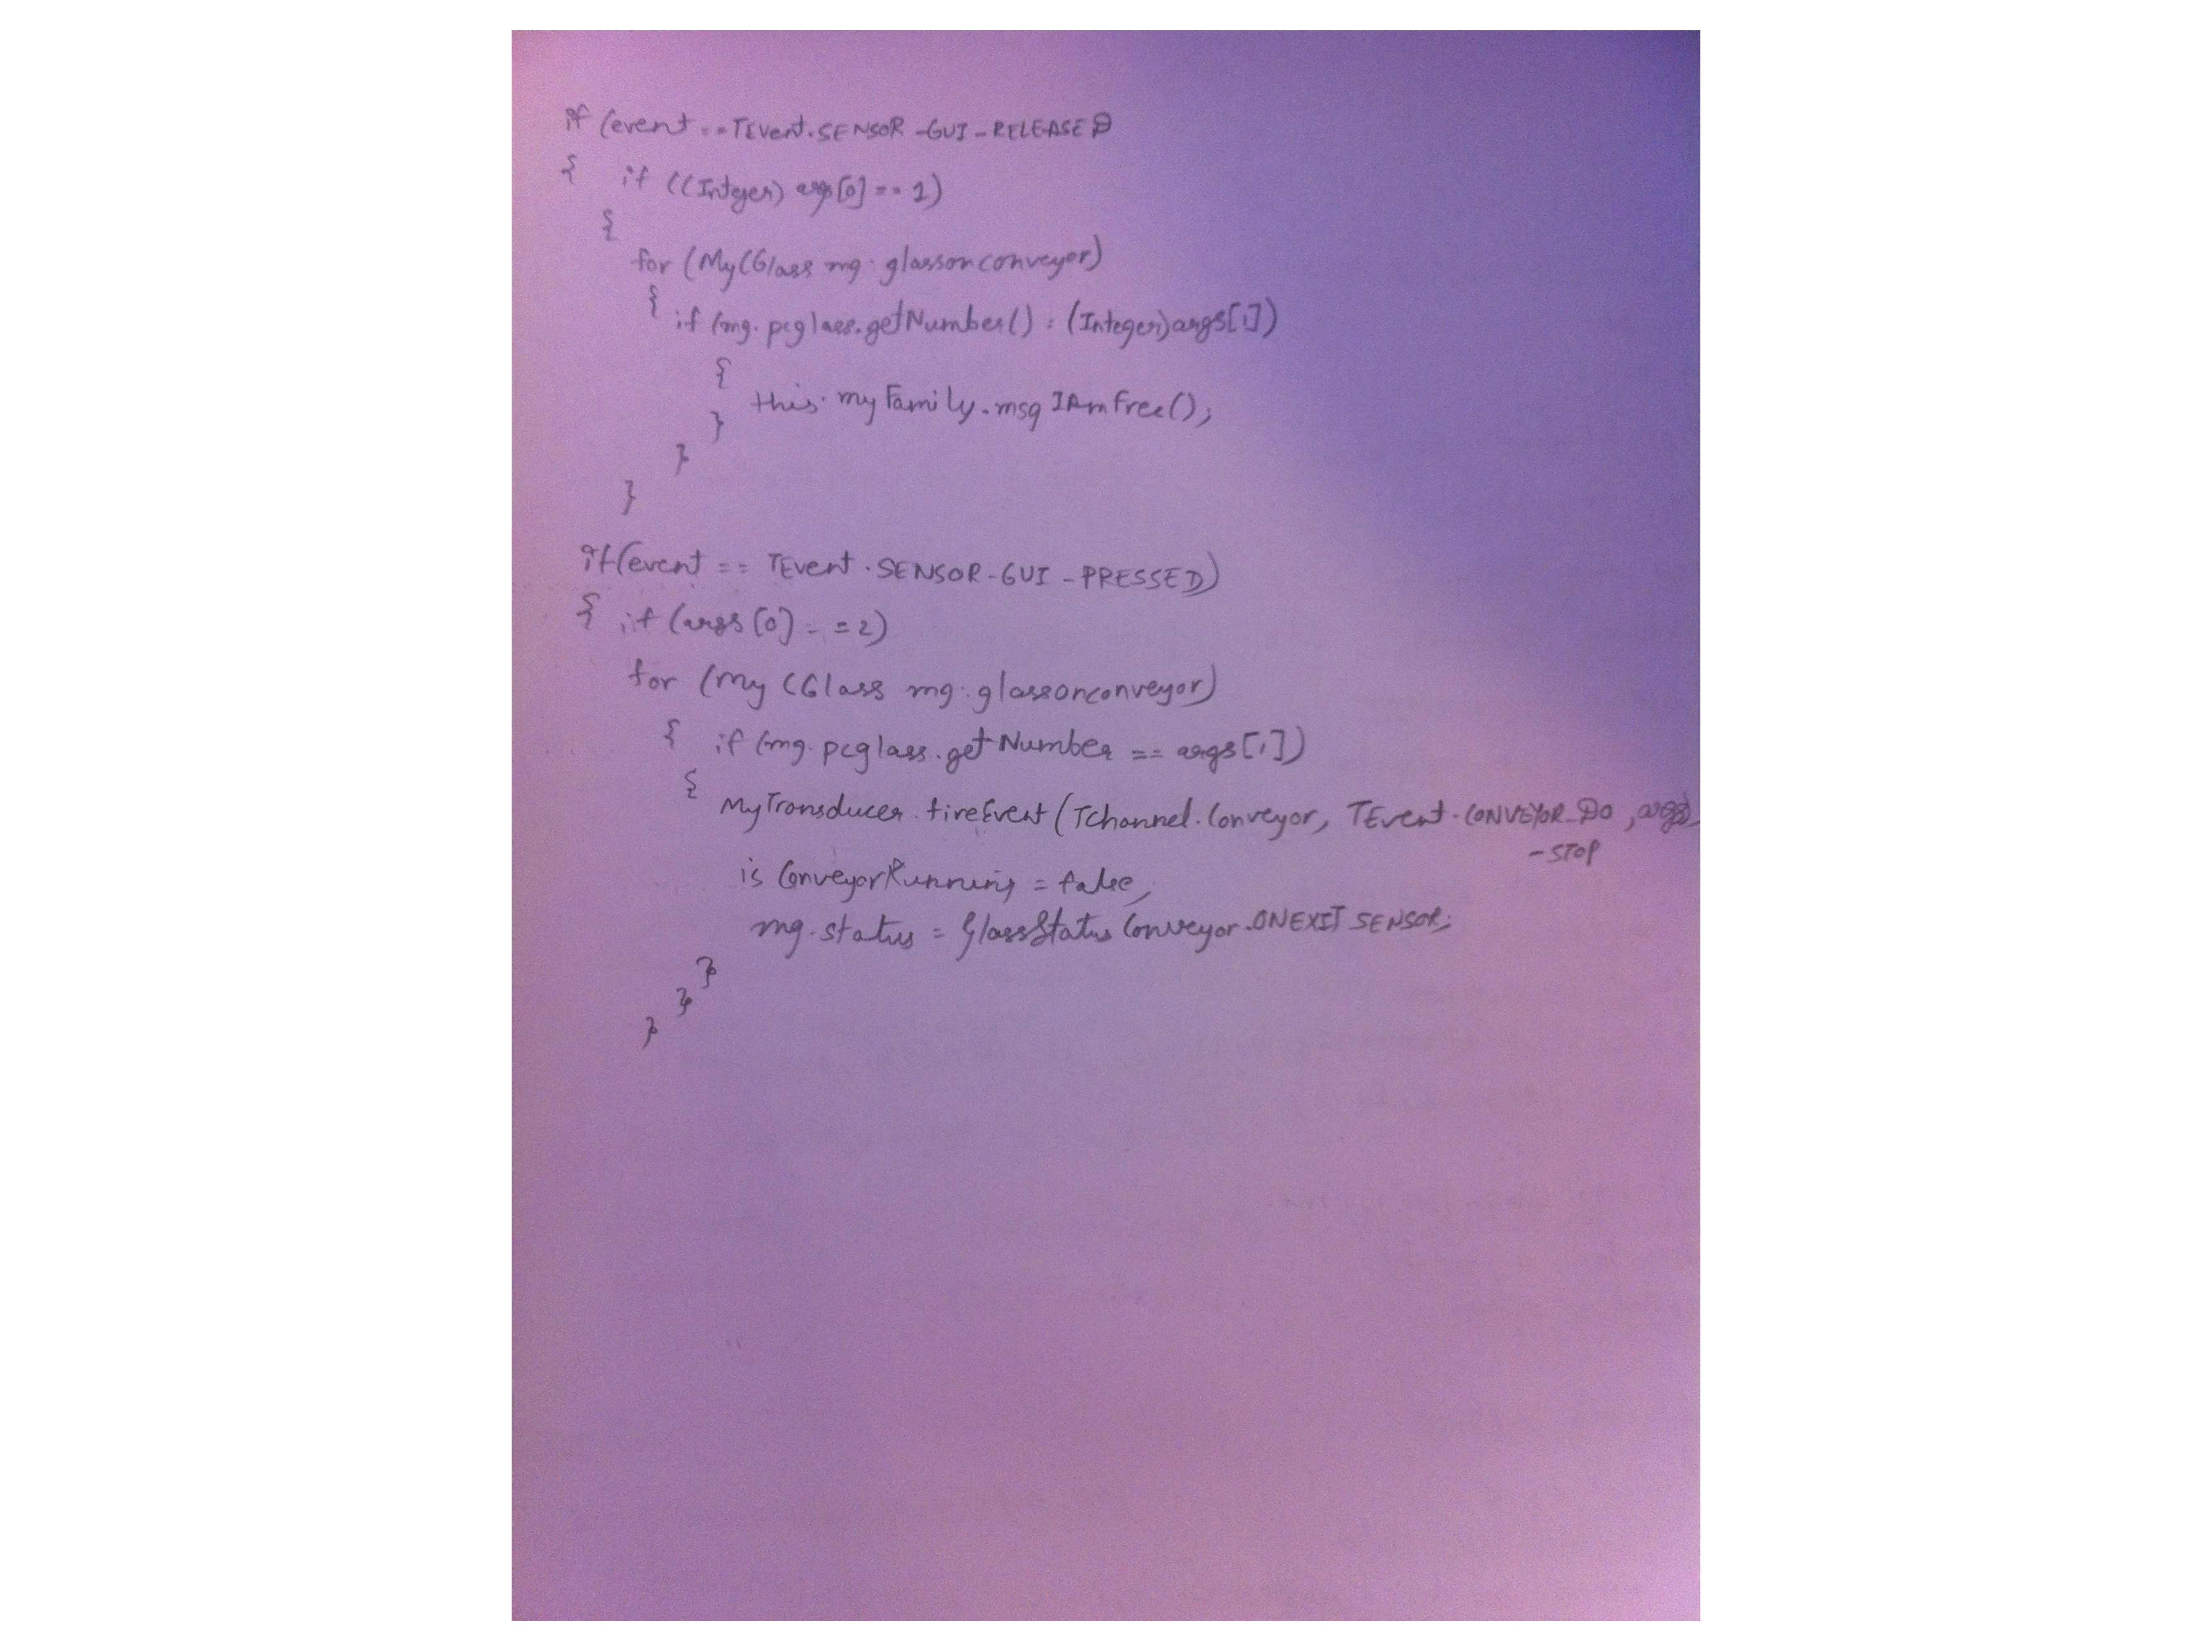 if (event == TEvent.SENSOR-GUI-RELEASED
{ if ((Integer) args[0] == 1)
{
for (MyCGlass mg: glassonconveyor)
{ if (mg.pcglass.getNumber() = (Integer)args[1])
{
this.myFamily.msgIAmFree();
}
}
}
if(event == TEvent.SENSOR-GUI-PRESSED)
{ if (args[0] == 2)
for (MyCGlass mg: glassonconveyor)
{ if (mg.pcglass.getNumber == args[1])
{
MyTransducer.fireEvent(TChannel.Conveyor, TEvent.CONVEYOR_DO, args)
-STOP
isConveyorRunning = false;
mg.status = GlassStatusConveyor.ONEXITSENSOR;
}
}
}